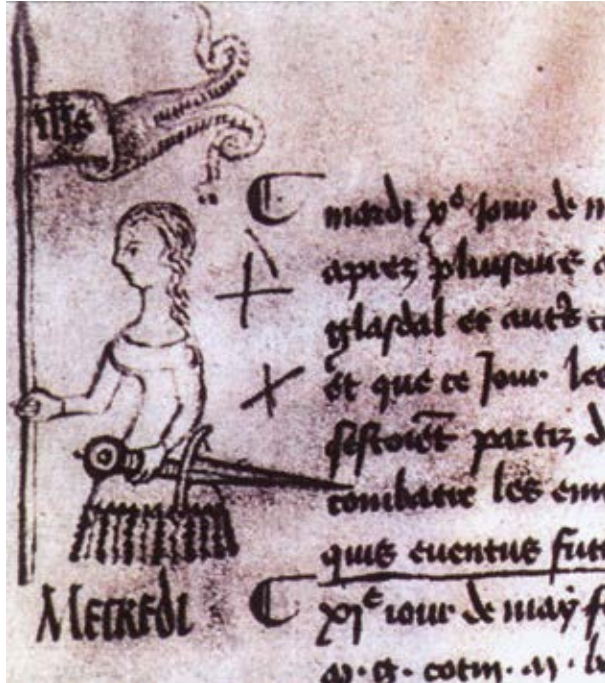 IHS
mardi xe jour de m
apres pluiseurs a
glasdal et autrs c
Et que ce Jour les
sestoient partiz d
combatre les enn
quis eventus futu
MERCREDI
xje jour de may f